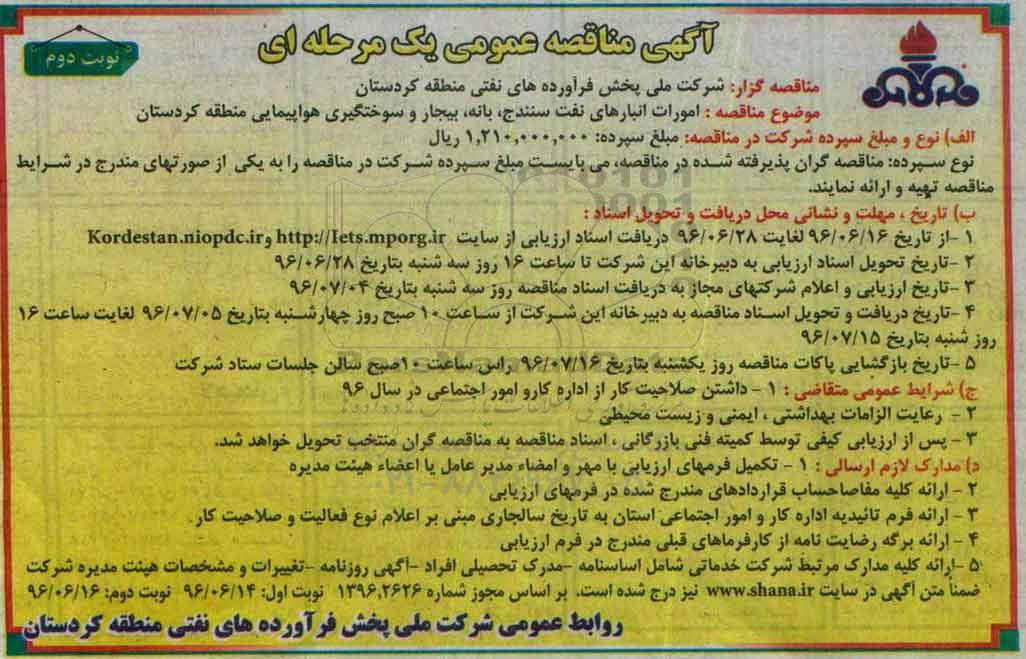 آگهی مناقصه عمومی یک مرحله ای
نوبت دوم
مناقصه گزار: شرکت ملی پخش فرآورده های نفتی منطقه کردستان
موضوع مناقصه : امورات انبارهای نفت سنندج، بانه، بیجار و سوختگیری هواپیمایی منطقه کردستان
الف) نوع و مبلغ سپرده شرکت در مناقصه: مبلغ سپرده: ۱,۲۱۰,۰۰۰,۰۰۰ ریال
نوع سپرده: مناقصه گران پذیرفته شده در مناقصه، می بایست مبلغ سپرده شرکت در مناقصه را به یکی از صورتهای مندرج در شرایط
مناقصه تهیه و ارائه نمایند.
ب) تاریخ ، مهلت و نشانی محل دریافت و تحویل اسناد :
۱ -از تاریخ ۹۶/۰۶/۱۶ لغایت ۹۶/۰۶/۲۸ دریافت اسناد ارزیابی از سایت http://Iets.mporg.ir و Kordestan.niopdc.ir
۲ -تاریخ تحویل اسناد ارزیابی به دبیرخانه این شرکت تا ساعت ۱۶ روز سه شنبه بتاریخ ۹۶/۰۶/۲۸
۳ -تاریخ ارزیابی و اعلام شرکتهای مجاز به دریافت اسناد مناقصه روز سه شنبه بتاریخ ۹۶/۰۷/۰۴
۴ -تاریخ دریافت و تحویل اسناد مناقصه به دبیرخانه این شرکت از ساعت ۱۰ صبح روز چهارشنبه بتاریخ ۹۶/۰۷/۰۵ لغایت ساعت ۱۶
روز شنبه بتاریخ ۹۶/۰۷/۱۵
۵ -تاریخ بازگشایی پاکات مناقصه روز یکشنبه بتاریخ ۹۶/۰۷/۱۶ راس ساعت ۱۰صبح سالن جلسات ستاد شرکت
ج) شرایط عمومی متقاضی : ۱ - داشتن صلاحیت کار از اداره کارو امور اجتماعی در سال ۹۶
۲ - رعایت الزامات بهداشتی ، ایمنی و زیست محیطی
۳ - پس از ارزیابی کیفی توسط کمیته فنی بازرگانی ، اسناد مناقصه به مناقصه گران منتخب تحویل خواهد شد.
د) مدارک لازم ارسالی : ۱ - تکمیل فرمهای ارزیابی با مهر و امضاء مدیر عامل یا اعضاء هیئت مدیره
۲ - ارائه کلیه مفاصاحساب قراردادهای مندرج شده در فرمهای ارزیابی
۳ - ارائه فرم تائیدیه اداره کار و امور اجتماعی استان به تاریخ سالجاری مبنی بر اعلام نوع فعالیت و صلاحیت کار.
۴ - ارائه برگه رضایت نامه از کارفرماهای قبلی مندرج در فرم ارزیابی
۵ -ارائه کلیه مدارک مرتبط شرکت خدماتی شامل اساسنامه -مدرک تحصیلی افراد -آگهی روزنامه -تغییرات و مشخصات هیئت مدیره شرکت
ضمناً متن آگهی در سایت www.shana.ir نیز درج شده است. بر اساس مجوز شماره ۱۳۹۶,۲۶۲۶ نوبت اول: ۹۶/۰۶/۱۴ نوبت دوم: ۹۶/۰۶/۱۶
روابط عمومی شرکت ملی پخش فرآورده های نفتی منطقه کردستان